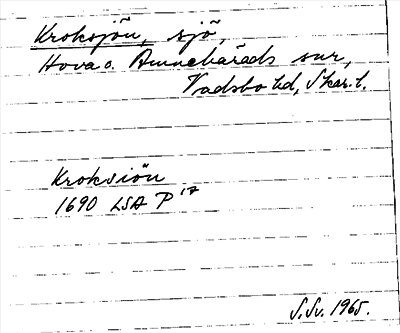 Kroksjön, sjö,
Hova o. Amnehärads snr,
Vadsbo hd, Skar. l.
Kroksiön
1690 LSA P 17
S.Sv. 1965.